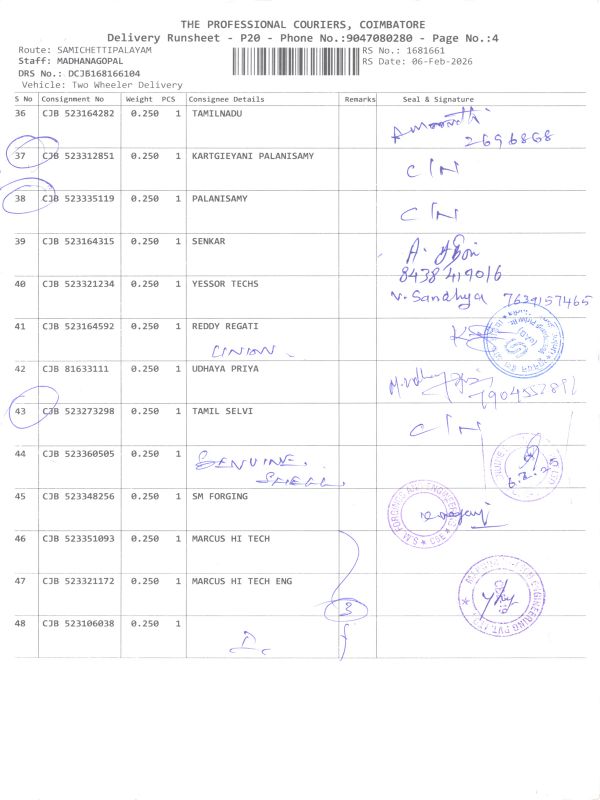 THE PROFESSIONAL COURIERS, COIMBATORE
Delivery Runsheet - P20 - Phone No.:9047080280 - Page No.:4
Route: SAMICHETTIPALAYAM RS No.: 1681661
Staff: MADHANAGOPAL RS Date: 06-Feb-2026
DRS No.: DCJB168166104
Vehicle: Two Wheeler Delivery
S No Consignment No Weight PCS Consignee Details Remarks Seal & Signature
36 CJB 523164282 0.250 1 TAMILNADU
2696868
37 CJB 523312851 0.250 1 KARTGIEYANI PALANISAMY C/N
38 CJB 523335119 0.250 1 PALANISAMY C/N
39 CJB 523164315 0.250 1 SENKAR
8438419016
40 CJB 523321234 0.250 1 YESSOR TECHS V. Sandhya 7639157465
41 CJB 523164592 0.250 1 REDDY REGATI
UNION
42 CJB 81633111 0.250 1 UDHAYA PRIYA
43 CJB 523273298 0.250 1 TAMIL SELVI C/N
44 CJB 523360505 0.250 1 GENUINE
SHELL
45 CJB 523348256 0.250 1 SM FORGING
46 CJB 523351093 0.250 1 MARCUS HI TECH
47 CJB 523321172 0.250 1 MARCUS HI TECH ENG
3
48 CJB 523106038 0.250 1